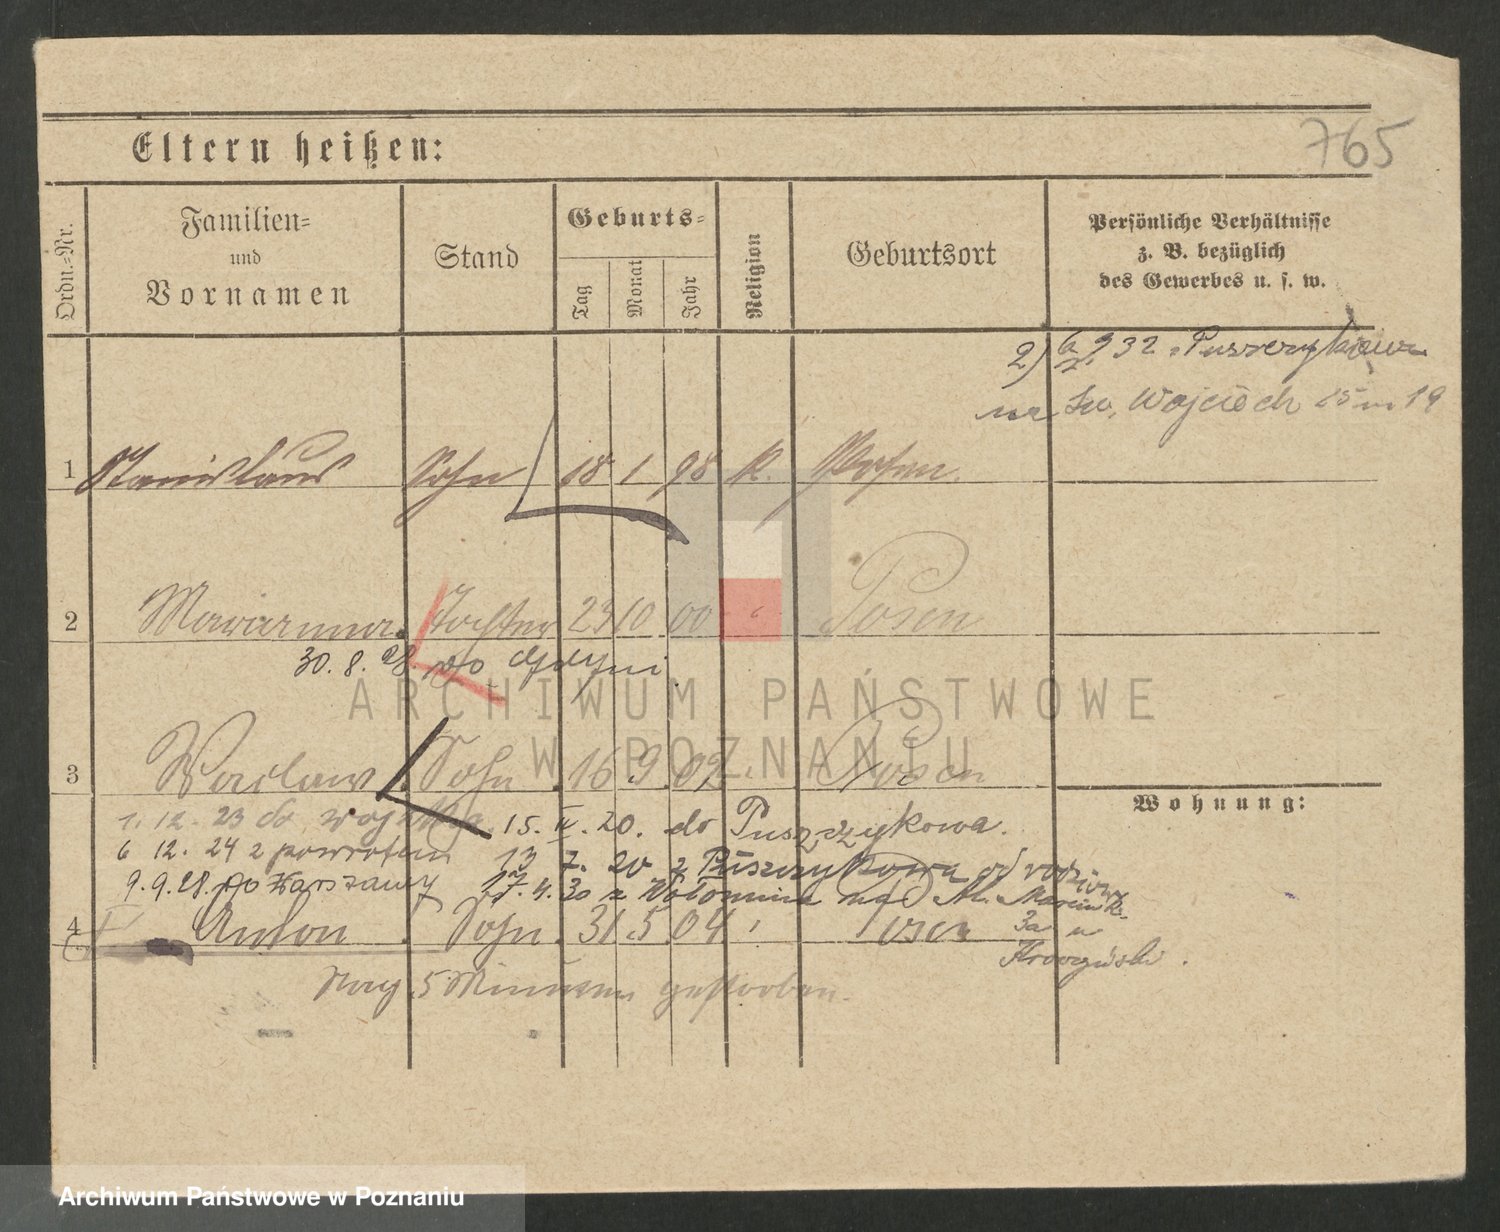 765
Eltern heißen:
Ordn.-Nr.
Familien-
und
Vornamen
Stand
Geburts-
Tag
Monat
Jahr
Religion
Geburtsort
Persönliche Verhältnisse
z. B. bezüglich
des Gewerbes u. s. w.
2) 6/2 932 z Puszczykowa
na Św. Wojciech 25 m 19
1 Stanislaus Sohn 18 1 98 k. Posen.
2 Marianna Tochter 23 10 00 " Posen
30. 8. 28. do Gdyni
3 Waclaw Sohn 16 9 02 " Posen
Wohnung:
1. 12. 23 do wojska. 15. IV. 20. do Puszczykowa.
6 12. 24 z powrotem 13 7. 20 z Puszczykowa od rodziców
9. 9. 28. do Warszawy 17. 4. 30 z Wołomina na Św. Marcin
4 Anton Sohn 31 5 04 " Posen
Nach 5 Minuten gestorben.
ARCHIWUM PAŃSTWOWE
W POZNANIU
Archiwum Państwowe w Poznaniu